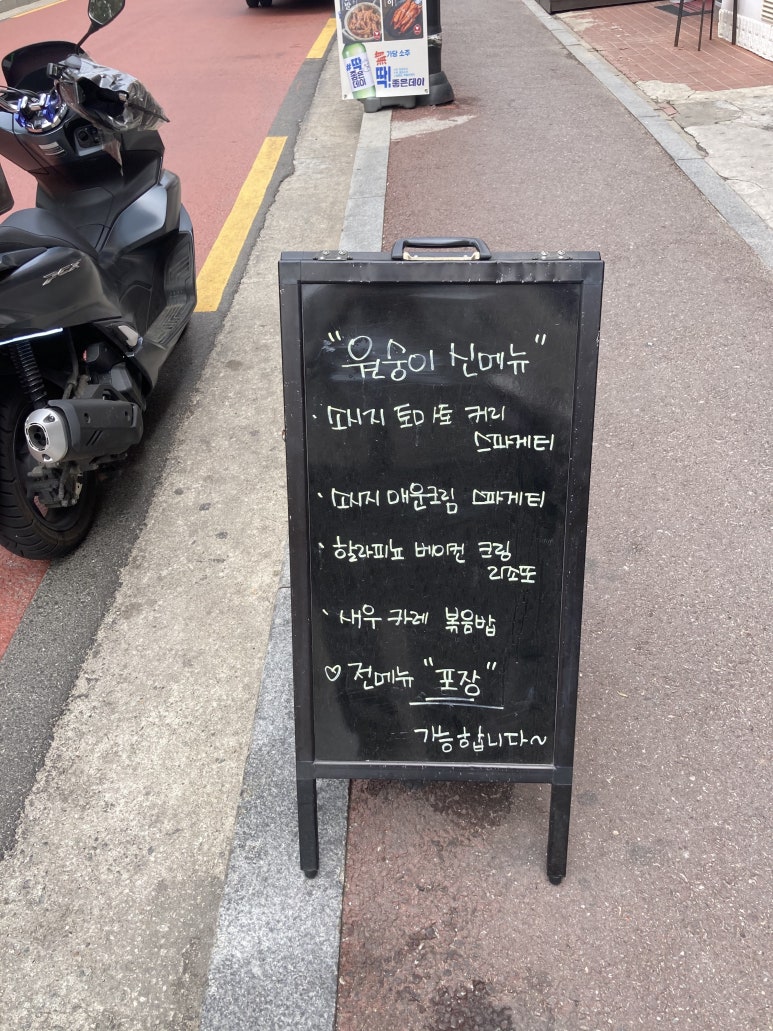 "원숭이 신메뉴"
· 소시지 토마토 커리
스파게티
· 소시지 매운크림 스파게티
· 할라피뇨 베이컨 크림
리소또
· 새우 카레 볶음밥
♡ 전메뉴 "포장"
가능합니다~
PCX
좋은데이